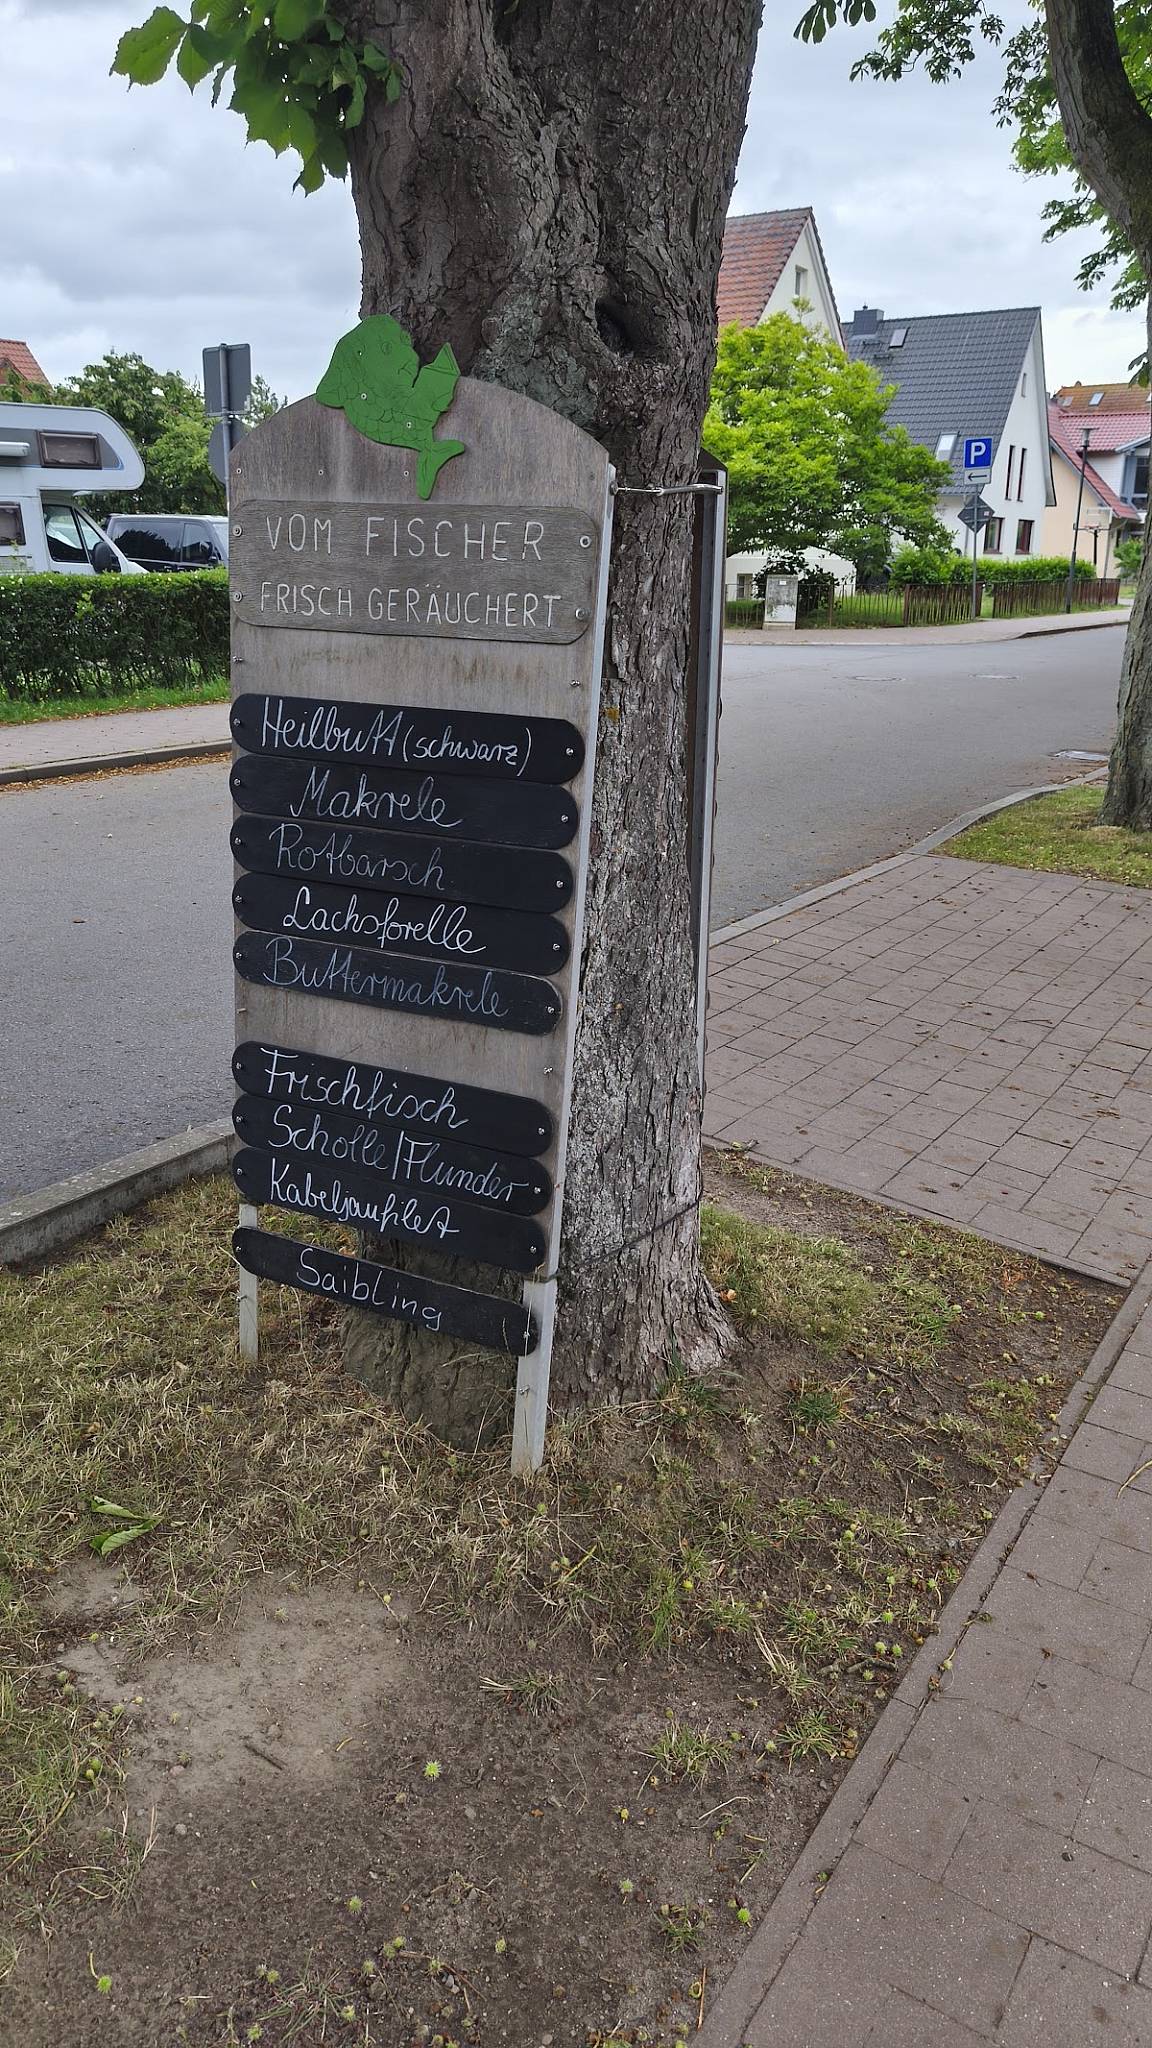 VOM FISCHER
FRISCH GERÄUCHERT
Heilbutt (schwarz)
Makrele
Rotbarsch
Lachsforelle
Buttermakrele
Frischfisch
Scholle/Flunder
Kabeljaufilet
Saibling
P